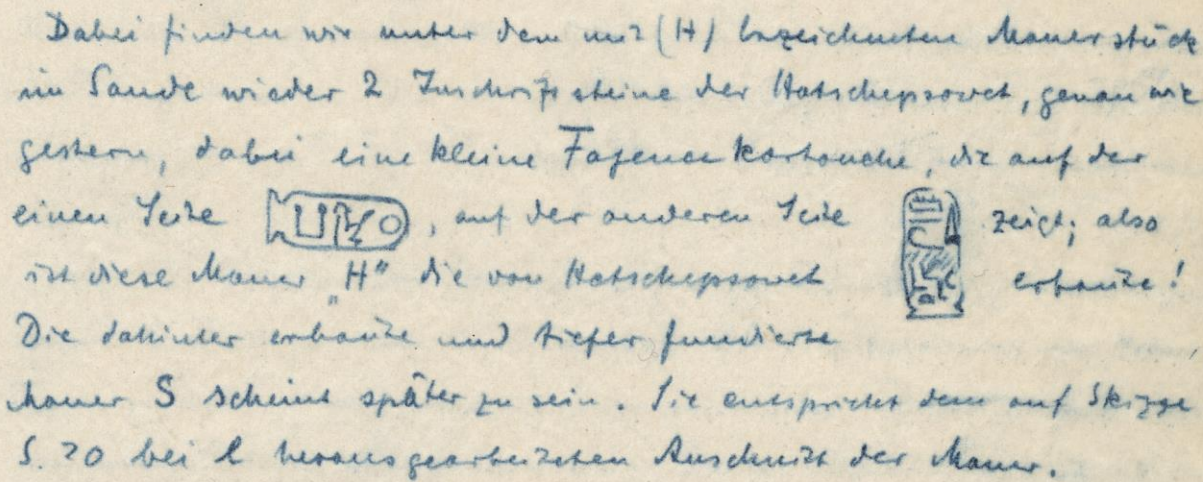 Dabei finden wir unter dem mit (H) bezeichneten Mauerstück
im Sande wieder 2 Inschriftsteine der Hatschepsowet, genau wie
gestern, dabei eine kleine Fayencekartouche, die auf der
einen Seite , auf der anderen Seite zeigt; also
ist diese Mauer „H“ die von Hatschepsowet erbaute!
Die dahinter erbaute und tiefer fundierte
Mauer S scheint später zu sein. Sie entspricht dem auf Skizze
S. 20 bei l herausgearbeiteten Auschnitt der Mauer.